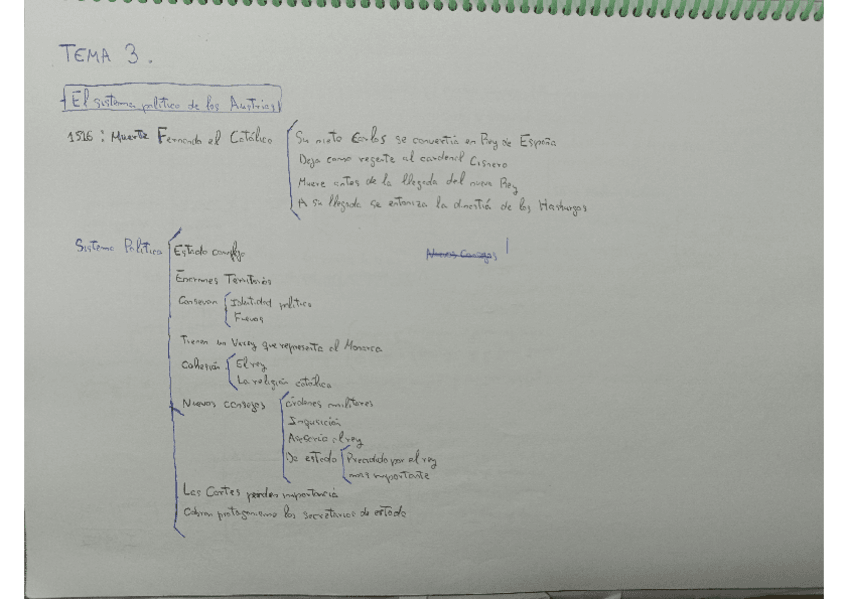 TEMA 3.
El sistema político de los Austrias
1516: Muerte Fernando el Católico
Su nieto Carlos se convertia en Rey de España
Deja como regente al cardenal Cisnero
Muere antes de la llegada del nuevo Rey
A su llegada se entroniza la dinastiá de los Hasburgos
Sistema Político
Estado complejo
Nuevos Consejos
Enormes Territorios
Conservan
Identidad política
Fueros
Tienen un Virrey que representa al Monarca
Cohesión
El rey
La religión católica
Nuevos consejos
Órdenes militares
Inquisición
Asesoria al rey
De estado
Presidido por el rey
mas importante
Las Cortes pierden importancia
Cobran protagonismo los secretarios de estado